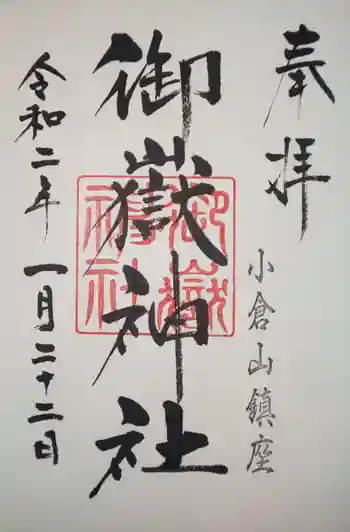 奉拝
小倉山鎮座
御嶽神社
御嶽
神社
令和二年 一月二十二日